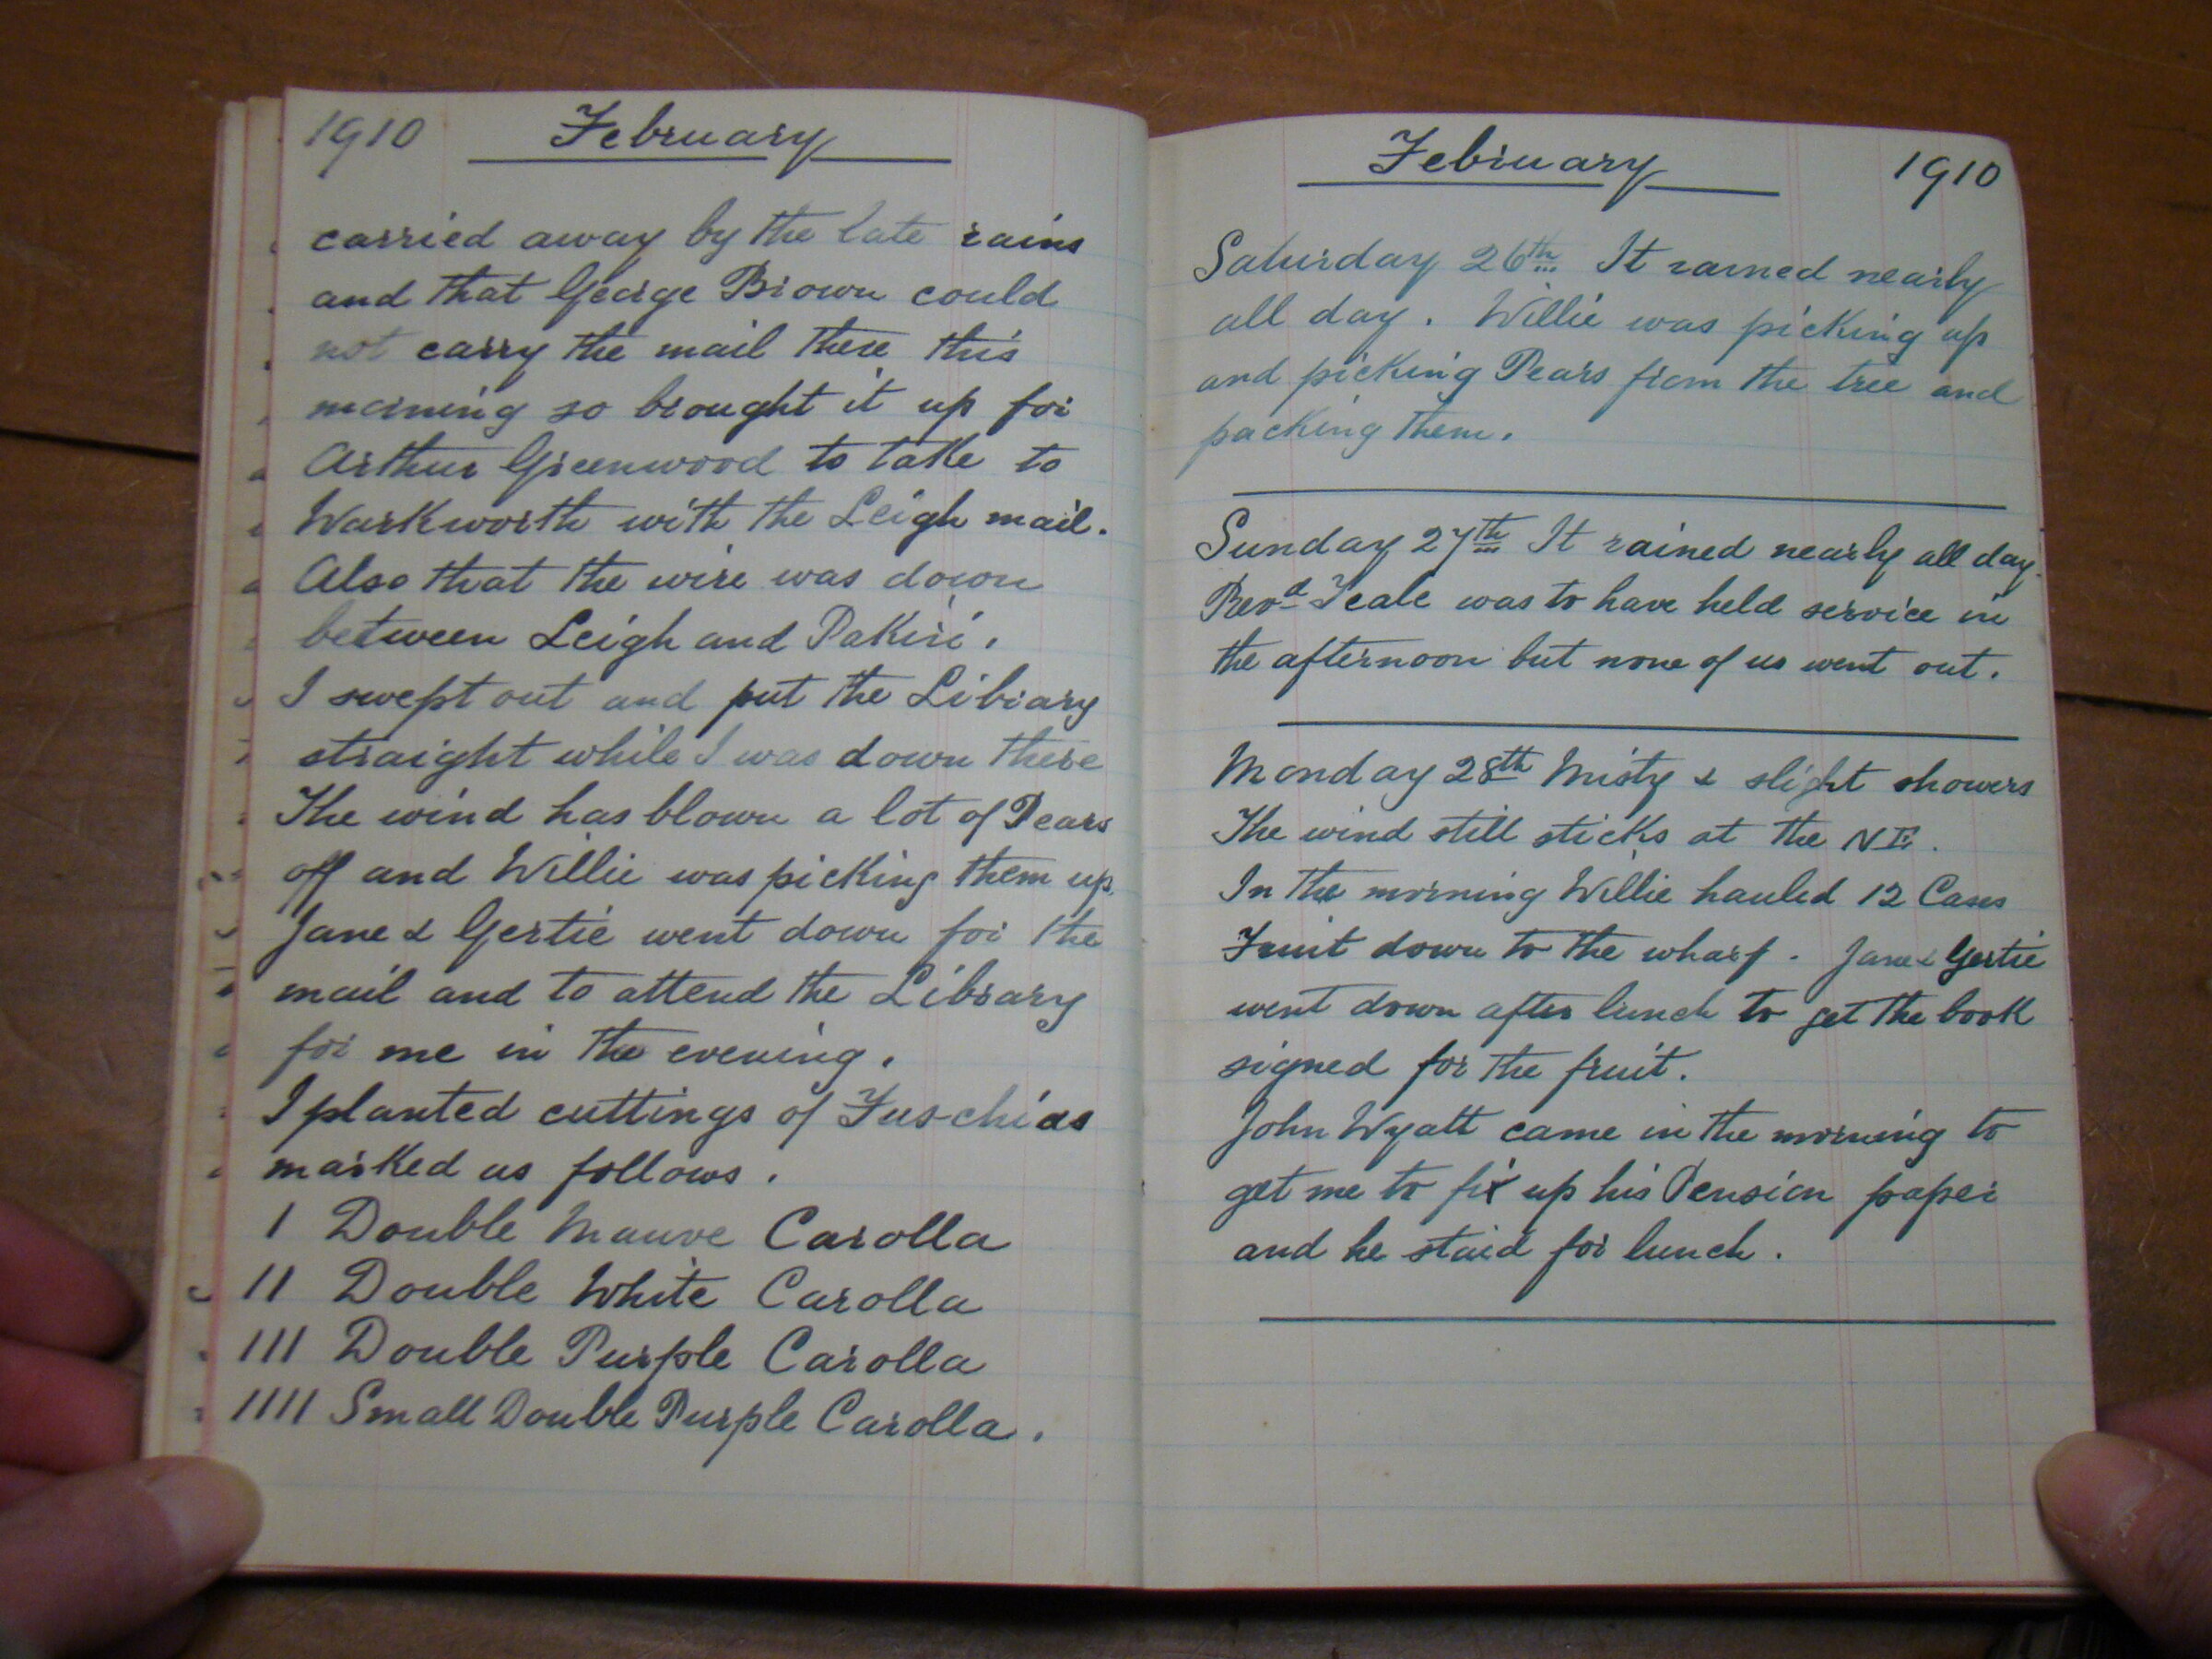 1910 February
carried away by the late rains
and that George Brown could
not carry the mail there this
morning so brought it up for
Arthur Greenwood to take to
Warkworth with the Leigh mail.
Also that the wire was down
between Leigh and Pakiri.
I swept out and put the Library
straight while I was down there
The wind has blown a lot of Pears
off and Willie was picking them up.
Jane & Gertie went down for the
mail and to attend the Library
for me in the evening.
I planted cuttings of Fuschias
marked as follows.
I Double Mauve Carolla
II Double White Carolla
III Double Purple Carolla
IIII Small Double Purple Carolla.
February 1910
Saturday 26th It rained nearly
all day. Willie was picking up
and picking Pears from the tree and
packing them.
Sunday 27th It rained nearly all day.
Revd Feale was to have held service in
the afternoon but none of us went out.
Monday 28th Misty & slight showers
The wind still sticks at the NE.
In the morning Willie hauled 12 Cases
Fruit down to the wharf. Jane & Gertie
went down after lunch to get the book
signed for the fruit.
John Wyatt came in the morning to
get me to fix up his Pension paper
and he staid for lunch.